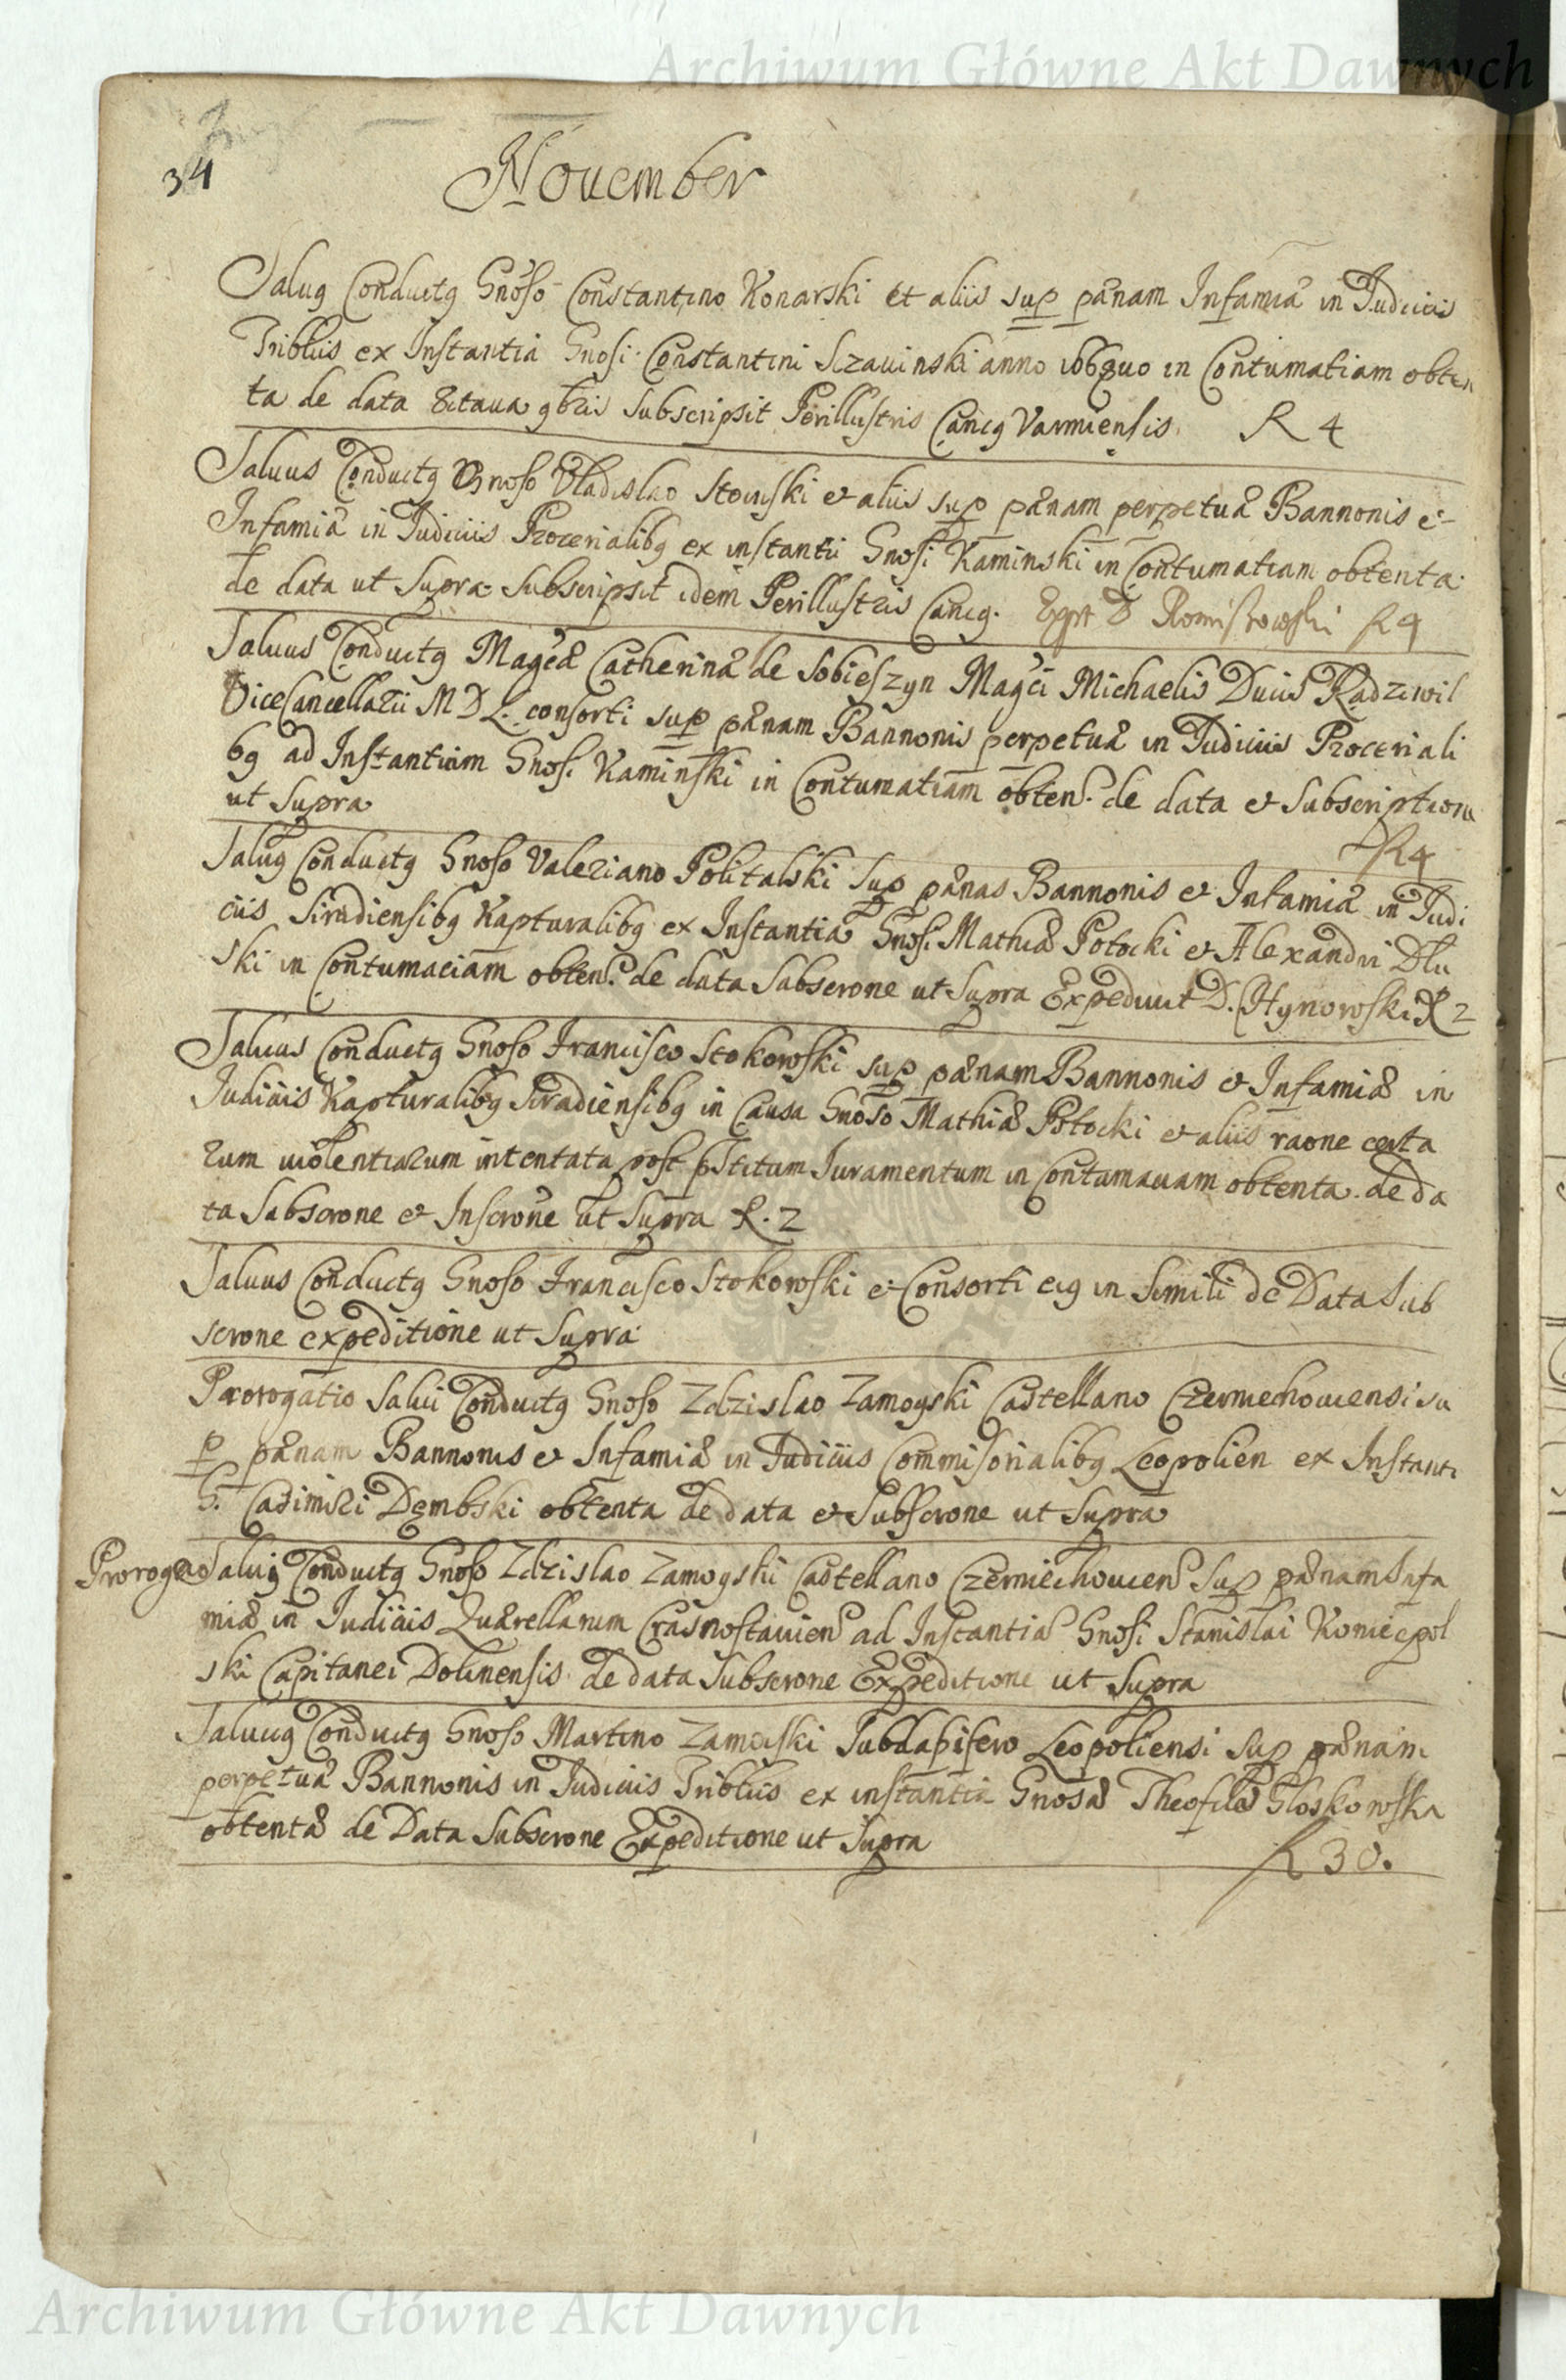 Archiwum Główne Akt Dawnych
34
November
Salus Conductus Gnoso Constantino Konarski et aliis sup pænam Infamiæ in Judiciis
Triblüs ex Instantia Gnosi Constantini Szavinski anno in Contumatiam obten
ta de data 8itava 9bris Subscripsit Perillustris Cancus Varmiensis. R 4
Salvus Conductus Gnoso Vladislao et aliis sup pænam perpetuæ Bannonis et
Infamiæ in Judiciis Procerialibus ex instantii Gnosi Kaminski in Contumatiam obtenta
de data ut Supra Subscripsit idem Perillustris Cancus. R 4
Salvus Conductus Magcæ Catherinæ de Sobieszyn Magci Michaelis Ducis Radziwil
ViceCancellarii M D L. consorti sup pænam Bannonis perpetuæ in Judiciis Proceriali
bus ad Instantiam Gnosi Kaminski in Contumatiam obten. de data et Subscriptione
ut Supra R 4
Salvus Conductus Gnoso Valeriano Politalski Sup pænas Bannonis et Infamiæ in Judi
ciis Siradiensibus Kapturalibus ex Instantia Gnosi Mathiæ Potocki et Alexandri Dlu
ski in Contumaciam obten. de data Subscrone ut Supra Expedivit D. Hynowski R 2
Salvus Conductus Gnoso Francisco Stokowski sup pænam Bannonis et Infamiæ in
Judiciis Kapturalibus Siradiensibus in Causa Gnoso Mathiæ Potocki et aliis raone certa
rum violentiarum intentata post pstitum Juramentum in Contumaciam obtenta de da
ta Subscrone et Inscrone ut Supra R. 2
Salvus Conductus Gnoso Francisco Stokowski et Consorti eius in Simili de Data Sub
scrone expeditione ut Supra
Prorogatio Salvi Conductus Gnoso Zdzislao Zamoyski Castellano Czerniechoviensi su
p pænam Bannonis et Infamiæ in Judiciis Commisorialibus Leopolien ex Instanti
G. Casimiri Dembski obtenta de data et Subscrone ut Supra
Prorogao Salvi Conductus Gnoso Zdzislao Zamoyski Castellano Czerniechovien Sup pænam Infa
miæ in Judiciis Quærellarum Crasnostavien ad Instantiæ Gnosi Stanislai Koniecpol
ski Capitanei Dolinensis de data Subscrone Expeditione ut Supra
Salvus Conductus Gnoso Martino Zamoiski Subdapifero Leopoliensi Sup pænam
perpetuæ Bannonis in Judiciis Triblüs ex instantia Gnosæ Theofilæ Gloskowska
obtentæ de Data Subscrone Expeditione ut Supra
R 30.
Archiwum Główne Akt Dawnych